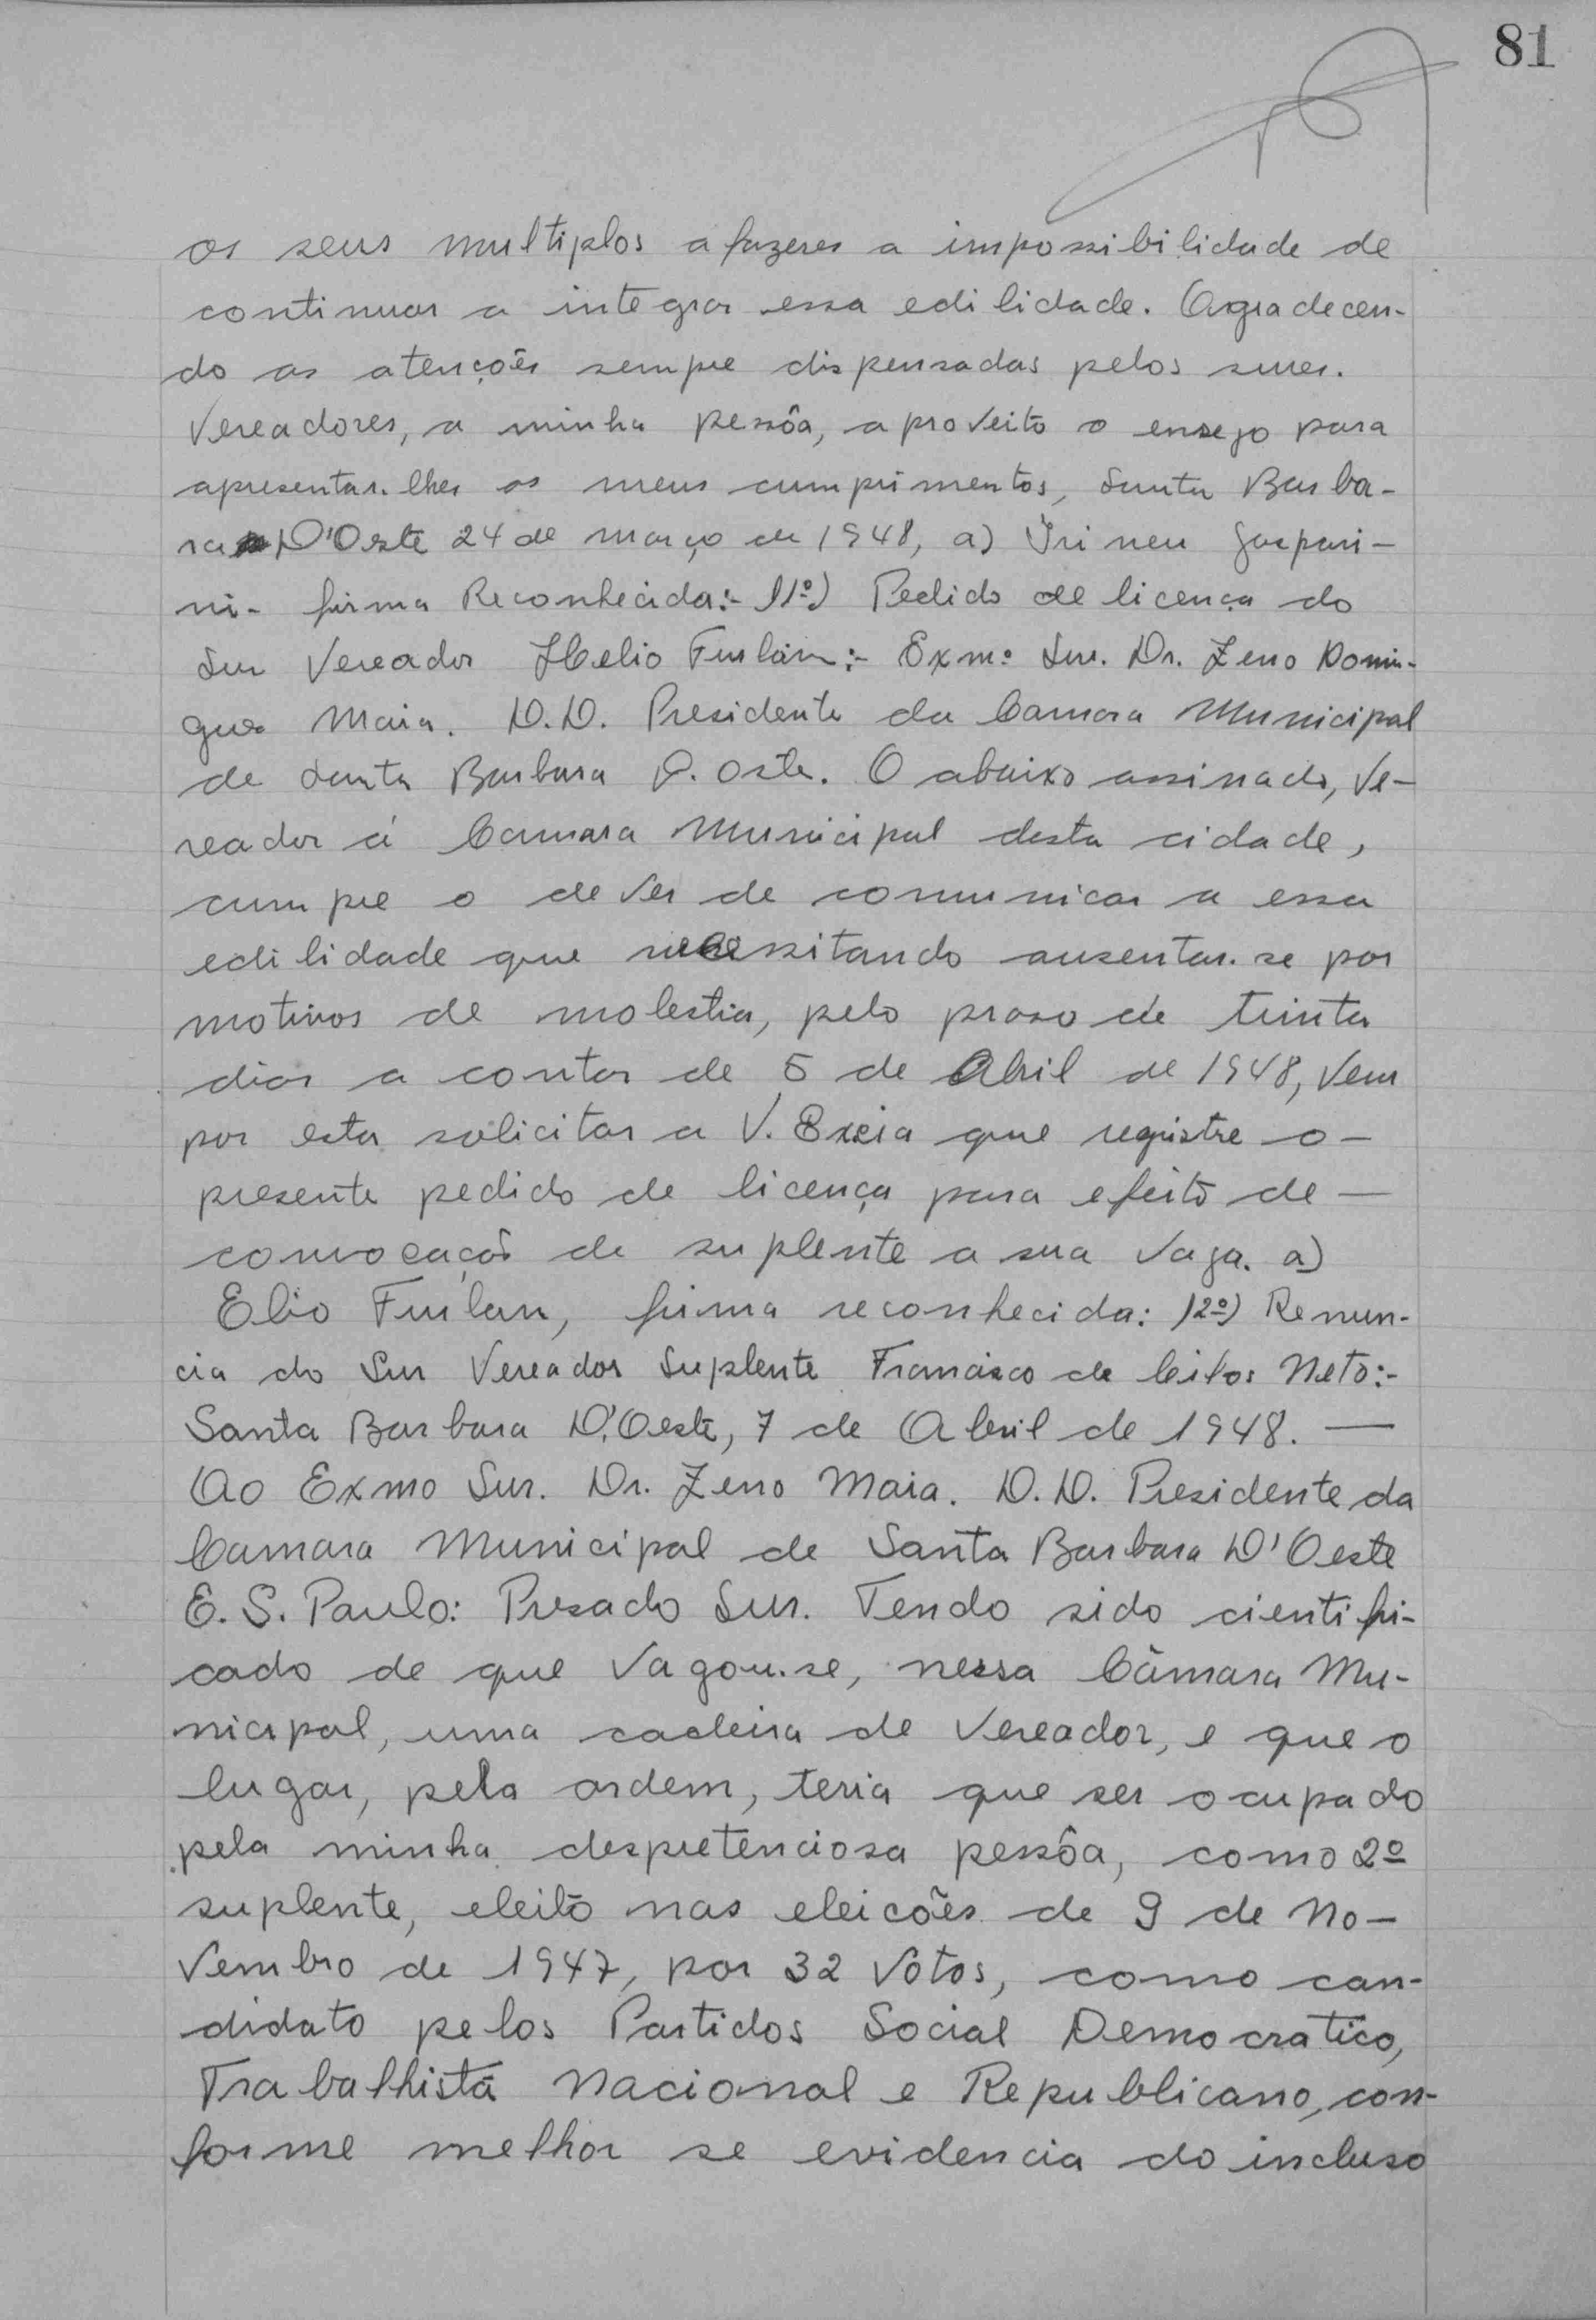 81
os seus multiplos afazeres a impossibilidade de
continuar a integrar essa edilidade. Agradecen-
do as atenções sempre dispensadas pelos snres.
Vereadores, a minha pessôa, aproveito o ensejo para
apresentar-lhes os meus cumprimentos, Santa Barba-
ra D'Oeste 24 de março de 1948, a) Irineu Gaspari-
ni- firma Reconhecida:- 11º) Pedido de licença do
Snr Vereador Helio Furlan:- Exmº Snr. Dr. Zeno Domin-
gues Maia. D.D. Presidente da Camara Municipal
de Santa Barbara D. Oste. O abaixo assinado, Ve-
reador á Camara Municipal desta cidade,
cumpre o dever de comunicar a essa
edilidade que necessitando ausentar-se por
motivos de molestia, pelo praso de trinta
dias a contar de 5 de Abril de 1948, vem
por esta solicitar a V. Excia que registre o-
presente pedido de licença para efeito de-
convocação de suplente a sua vaga. a)
Elio Furlan, firma reconhecida: 12º) Renun-
cia do Snr Vereador Suplente Francisco de Leitos Neto:-
Santa Barbara D'Oeste, 7 de Abril de 1948. —
Ao Exmo Snr. Dr. Zeno Maia. D.D. Presidente da
Camara Municipal de Santa Barbara D'Oeste
E. S. Paulo: Presado Snr. Tendo sido cientifi-
cado de que vagou-se, nessa Câmara Mu-
nicipal, uma cadeira de Vereador, e que o
lugar, pela ordem, teria que ser ocupado
pela minha despretenciosa pessôa, como 2º
suplente, eleito nas eleicões de 9 de No-
vembro de 1947, por 32 votos, como can-
didato pelos Partidos Social Democratico,
Trabalhista Nacional e Republicano, con-
forme melhor se evidencia do incluso